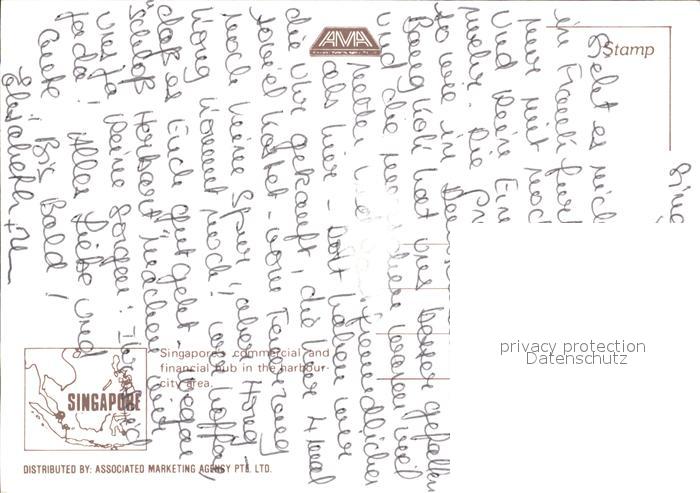 Sing
geht es nich
in Frankfurt
nur mit noch
und keine Ein
mehr. Die Gr
so wie in
Bangkok hat uns besser gefallen
und die Menschen waren weit
netter und freundlicher
als hier – dort haben wir
die Uhr gekauft, die hier 4 mal
soviel kostet – von Teuerung
noch keine Spur, aber Hong-
kong kommt noch! Wir hoffen,
daß es Euch gut geht – wegen
Schloß Herbart machen wir
uns ja keine Sorgen: Ihr seid
ja da! Alles Liebe und
Gute! Bis bald!
Elisabeth +
AMA
Stamp
Singapore's commercial and
financial hub in the harbour-
city area.
SINGAPORE
DISTRIBUTED BY: ASSOCIATED MARKETING AGENCY PTE. LTD.
privacy protection
Datenschutz